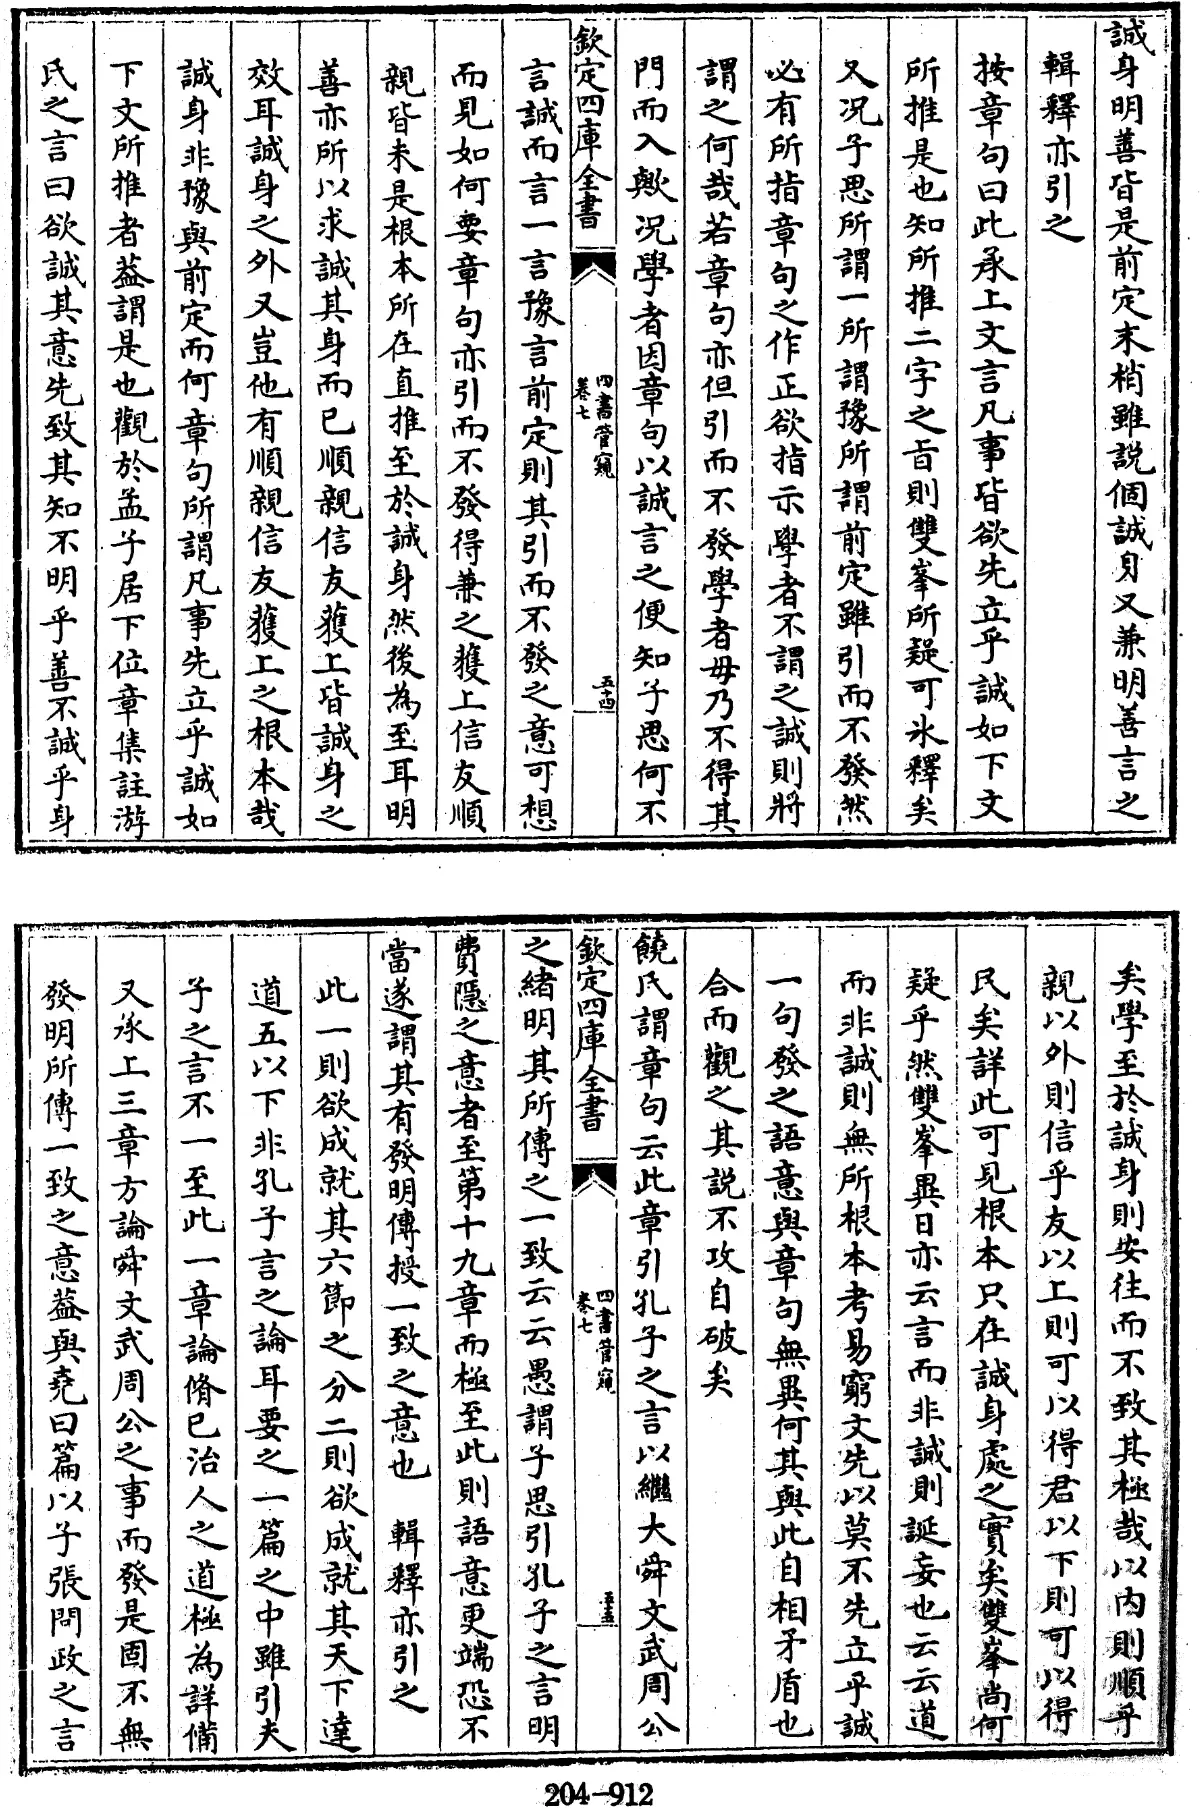 誠身明善皆是前定末梢雖説個誠身又兼明善言之
輯釋亦引之
按章句曰此承上文言凡事皆欲先立乎誠如下文
所推是也知所推二字之旨則雙峯所疑可氷釋矣
又况子思所謂一所謂豫所謂前定雖引而不發然
必有所指章句之作正欲指示學者不謂之誠則將
謂之何哉若章句亦但引而不發學者毋乃不得其
門而入歟况學者因章句以誠言之便知子思何不
欽定四庫全書
四書管窺
卷七
五十四
言誠而言一言豫言前定則其引而不發之意可想
而見如何要章句亦引而不發得兼之獲上信友順
親皆未是根本所在直推至於誠身然後為至耳明
善亦所以求誠其身而已順親信友獲上皆誠身之
效耳誠身之外又豈他有順親信友獲上之根本哉
誠身非豫與前定而何章句所謂凡事先立乎誠如
下文所推者葢謂是也觀於孟子居下位章集註游
氏之言曰欲誠其意先致其知不明乎善不誠乎身
矣學至於誠身則安往而不致其極哉以内則順乎
親以外則信乎友以上則可以得君以下則可以得
民矣詳此可見根本只在誠身處之實矣雙峯尚何
疑乎然雙峯異日亦云言而非誠則誕妄也云云道
而非誠則無所根本考易窮文先以莫不先立乎誠
一句發之語意與章句無異何其與此自相矛盾也
合而觀之其説不攻自破矣
饒氏謂章句云此章引孔子之言以繼大舜文武周公
欽定四庫全書
四書管窺
卷七
五十五
之緒明其所傳之一致云云愚謂子思引孔子之言明
費隱之意者至第十九章而極至此則語意更端恐不
當遂謂其有發明傳授一致之意也　輯釋亦引之
此一則欲成就其六節之分二則欲成就其天下達
道五以下非孔子言之論耳要之一篇之中雖引夫
子之言不一至此一章論脩已治人之道極為詳備
又承上三章方論舜文武周公之事而發是固不無
發明所傳一致之意葢與堯曰篇以子張問政之言
204-912